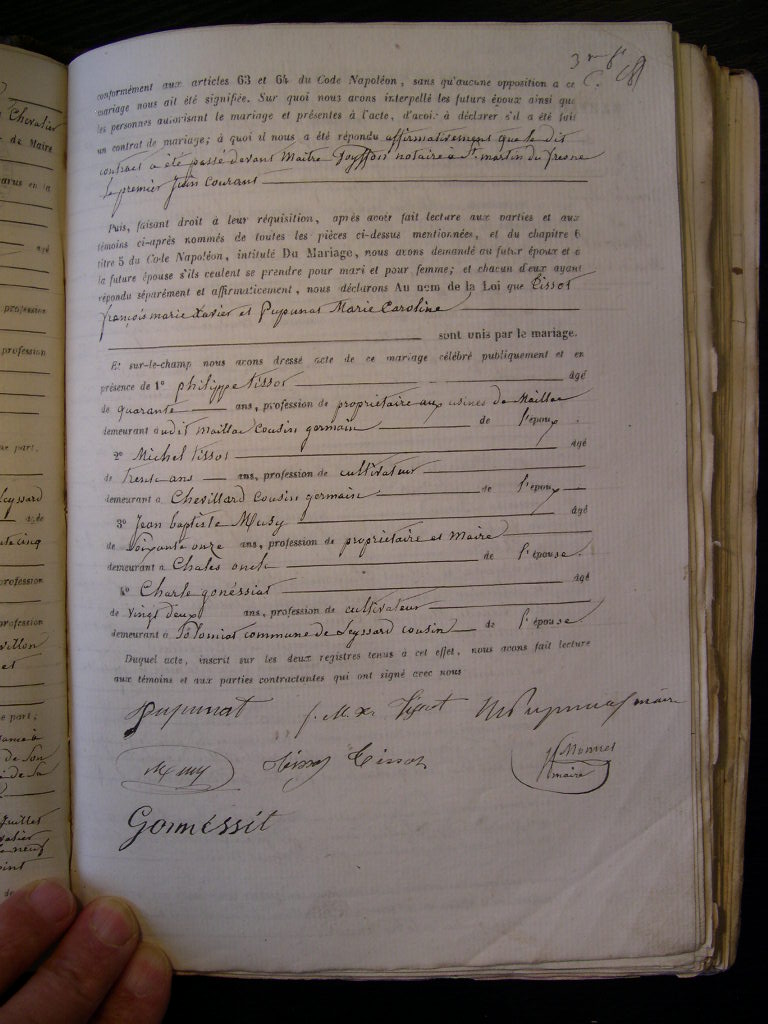 Chevalier
de Maire
arus en la
âgé
profession
profession
me part,
Leyssard
te cinq
profession
profession
et
e part;
de Son
Juillet
3me ft
C.
conformément aux articles 63 et 64 du Code Napoléon, sans qu'aucune opposition a ce
mariage nous ait été signifiée. Sur quoi nous avons interpellé les futurs époux ainsi que
les personnes autorisant le mariage et présentes à l'acte, d'avoir à déclarer s'il a été fait
un contrat de mariage; à quoi il nous a été répondu affirmativement que le dit
contrat a été passé devant Maître Goyffon notaire à St martin du fresne
le premier Juin Courant
Puis, faisant droit à leur réquisition, après avoir fait lecture aux parties et aux
témoins ci-après nommés de toutes les pièces ci-dessus mentionnées, et du chapitre 6
titre 5 du Code Napoléon, intitulé Du Mariage, nous avons demandé au futur époux et a
la future épouse s'ils veulent se prendre pour mari et pour femme; et chacun d'eux ayant
répondu séparément et affirmativement, nous déclarons Au nom de la Loi que Tissot
françois marie Xavier et Pupunat Marie Caroline
sont unis par le mariage.
Et sur-le-champ nous avons dressé acte de ce mariage célébré publiquement et en
présence de 1º philippe tissot âgé
de quarante ans, profession de propriétaire aux usines de Maillac
demeurant audit maillac Cousin germain de l'époux
2º Michel tissot âgé
de trente ans ans, profession de cultivateur
demeurant à Chevillard cousin germain de l'époux
3º Jean baptiste Musy âgé
de Soixante onze ans, profession de propriétaire et Maire
demeurant à Chales oncle de l'épouse
4º Charle gonéssiat âgé
de Vingt deux ans, profession de cultivateur
demeurant à Solomiat commune de Leyssard cousin de l'épouse
Duquel acte, inscrit sur les deux registres tenus à cet effet, nous avons fait lecture
aux témoins et aux parties contractantes qui ont signé avec nous
Pupunat f. M. Xr Tissot Pupunat maire
Musy Tissot Monnet
maire
Gonnessit